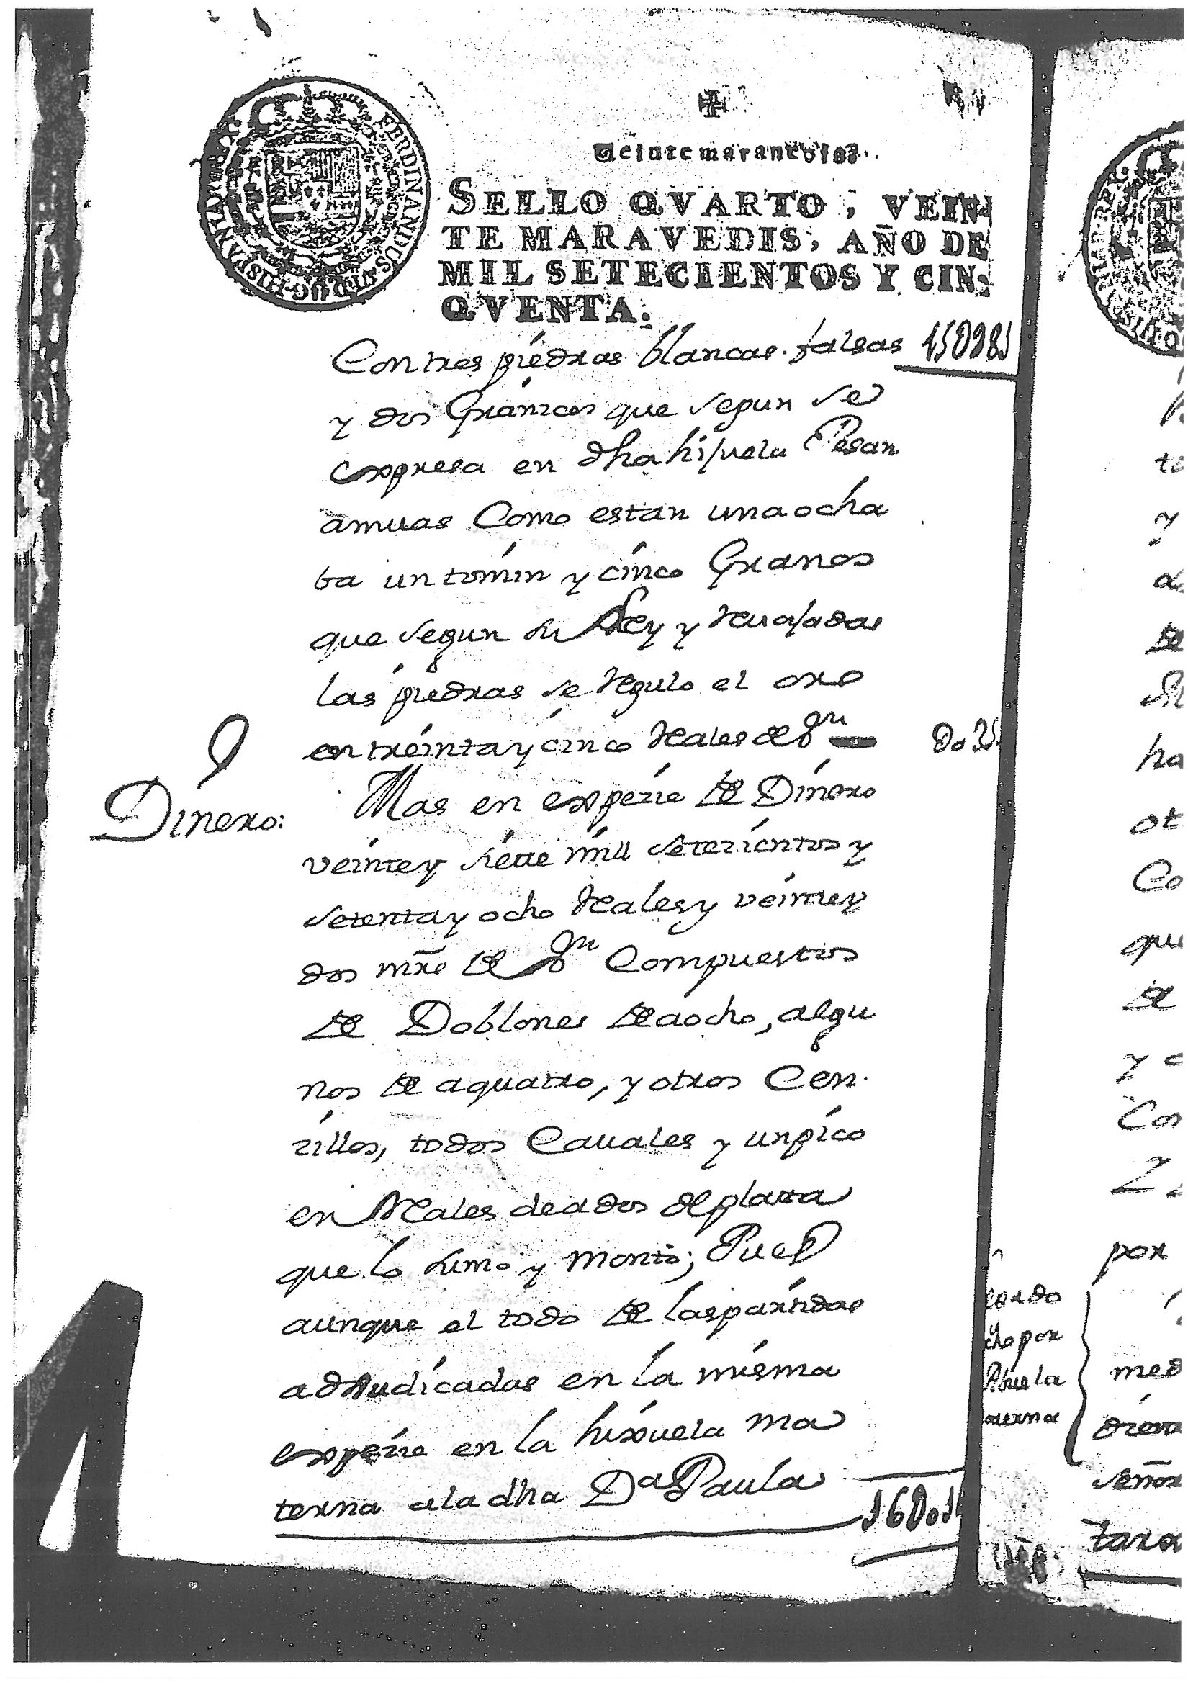 Veinte maravedis.
SELLO QVARTO, VEIN-
TE MARAVEDIS, AÑO DE
MIL SETECIENTOS Y CIN-
QVENTA.
FERDINANDUS VI D G HISPANIAR REX
Con tres piedras blancas falsas
y dos Granicos que segun se
expresa en dha hijuela Pesan
amuas Como estan una ocha
ba un tomin y cinco Granos
que segun su Ley y revajadas
las piedras se regulo el oro
en treinta y cinco Reales de Vn
Dinero:
Mas en expezie de Dinero
veinte y siete mill setezientos y
setenta y ocho Reales y veinte y
dos mrs de Vn Compuestos
de Doblones de a ocho, algu
nos de a quatro, y otros Cen-
zillos, todos Cavales y un pico
en Reales de a dos de plata
que lo sumo y monto; Pues
aunque el todo de las partidas
adjudicadas en la misma
expezie en la hixuela ma
terna a la dha Da Paula
por